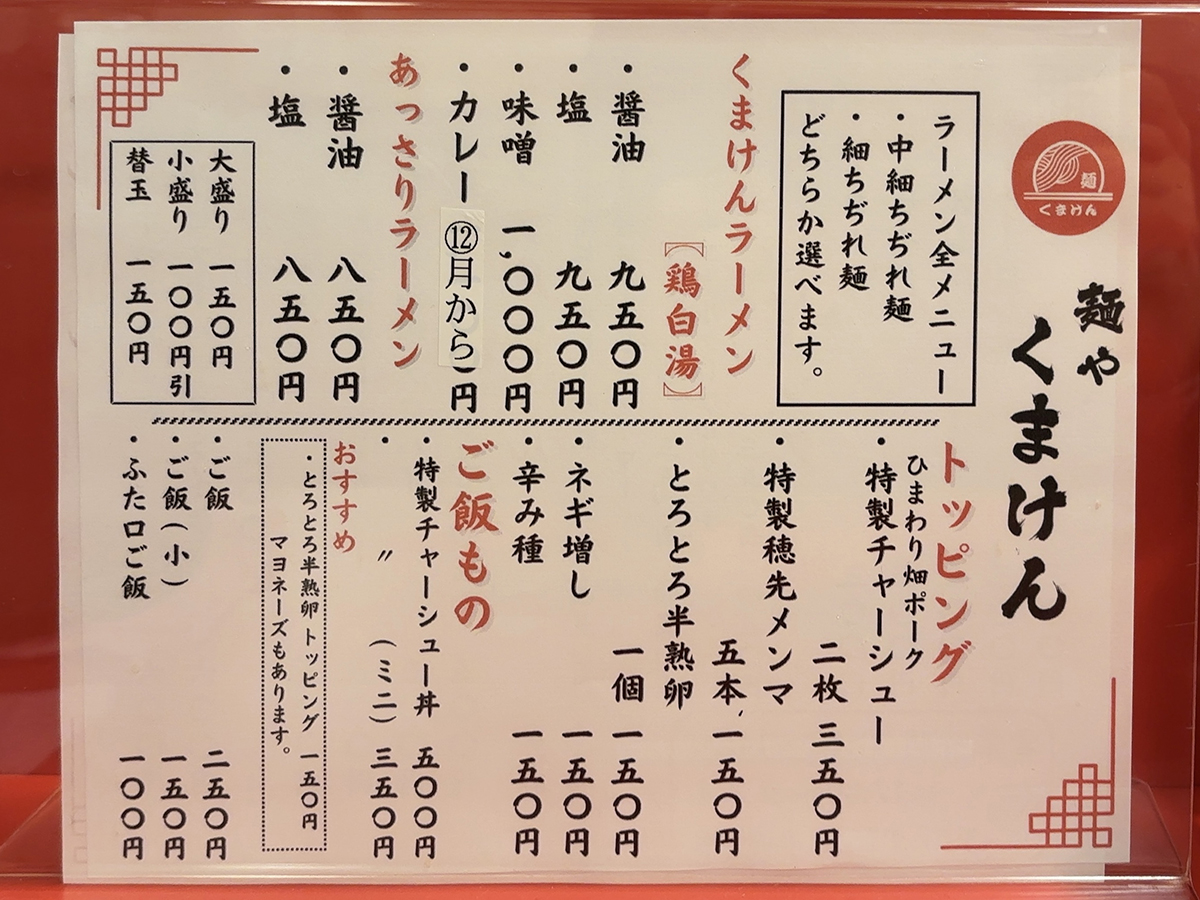 麺
くまけん
麺や
くまけん
ラーメン全メニュー
・中細ちぢれ麺
・細ちぢれ麺
どちらか選べます。
くまけんラーメン
【鶏白湯】
・醤油 九五〇円
・塩 九五〇円
・味噌 一,〇〇〇円
・カレー ⑫月から 円
あっさりラーメン
・醤油 八五〇円
・塩 八五〇円
大盛り 一五〇円
小盛り 一〇〇円引
替玉 一五〇円
トッピング
ひまわり畑ポーク
・特製チャーシュー
二枚 三五〇円
・特製穂先メンマ
五本 一五〇円
・とろとろ半熟卵
一個 一五〇円
・ネギ増し 一五〇円
・辛み種 一五〇円
ご飯もの
・特製チャーシュー丼 五〇〇円
・ 〃 (ミニ) 三五〇円
おすすめ
・とろとろ半熟卵トッピング 一五〇円
マヨネーズもあります。
・ご飯 二五〇円
・ご飯(小) 一五〇円
・ふた口ご飯 一〇〇円